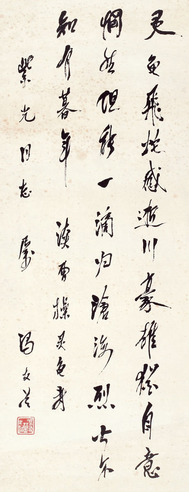 灵龟飞蛇感逝川豪雄犹自意
惘然但能一滴归沧海烈士不
知有暮年 读曹操灵龟寿
紫光同志属 冯文